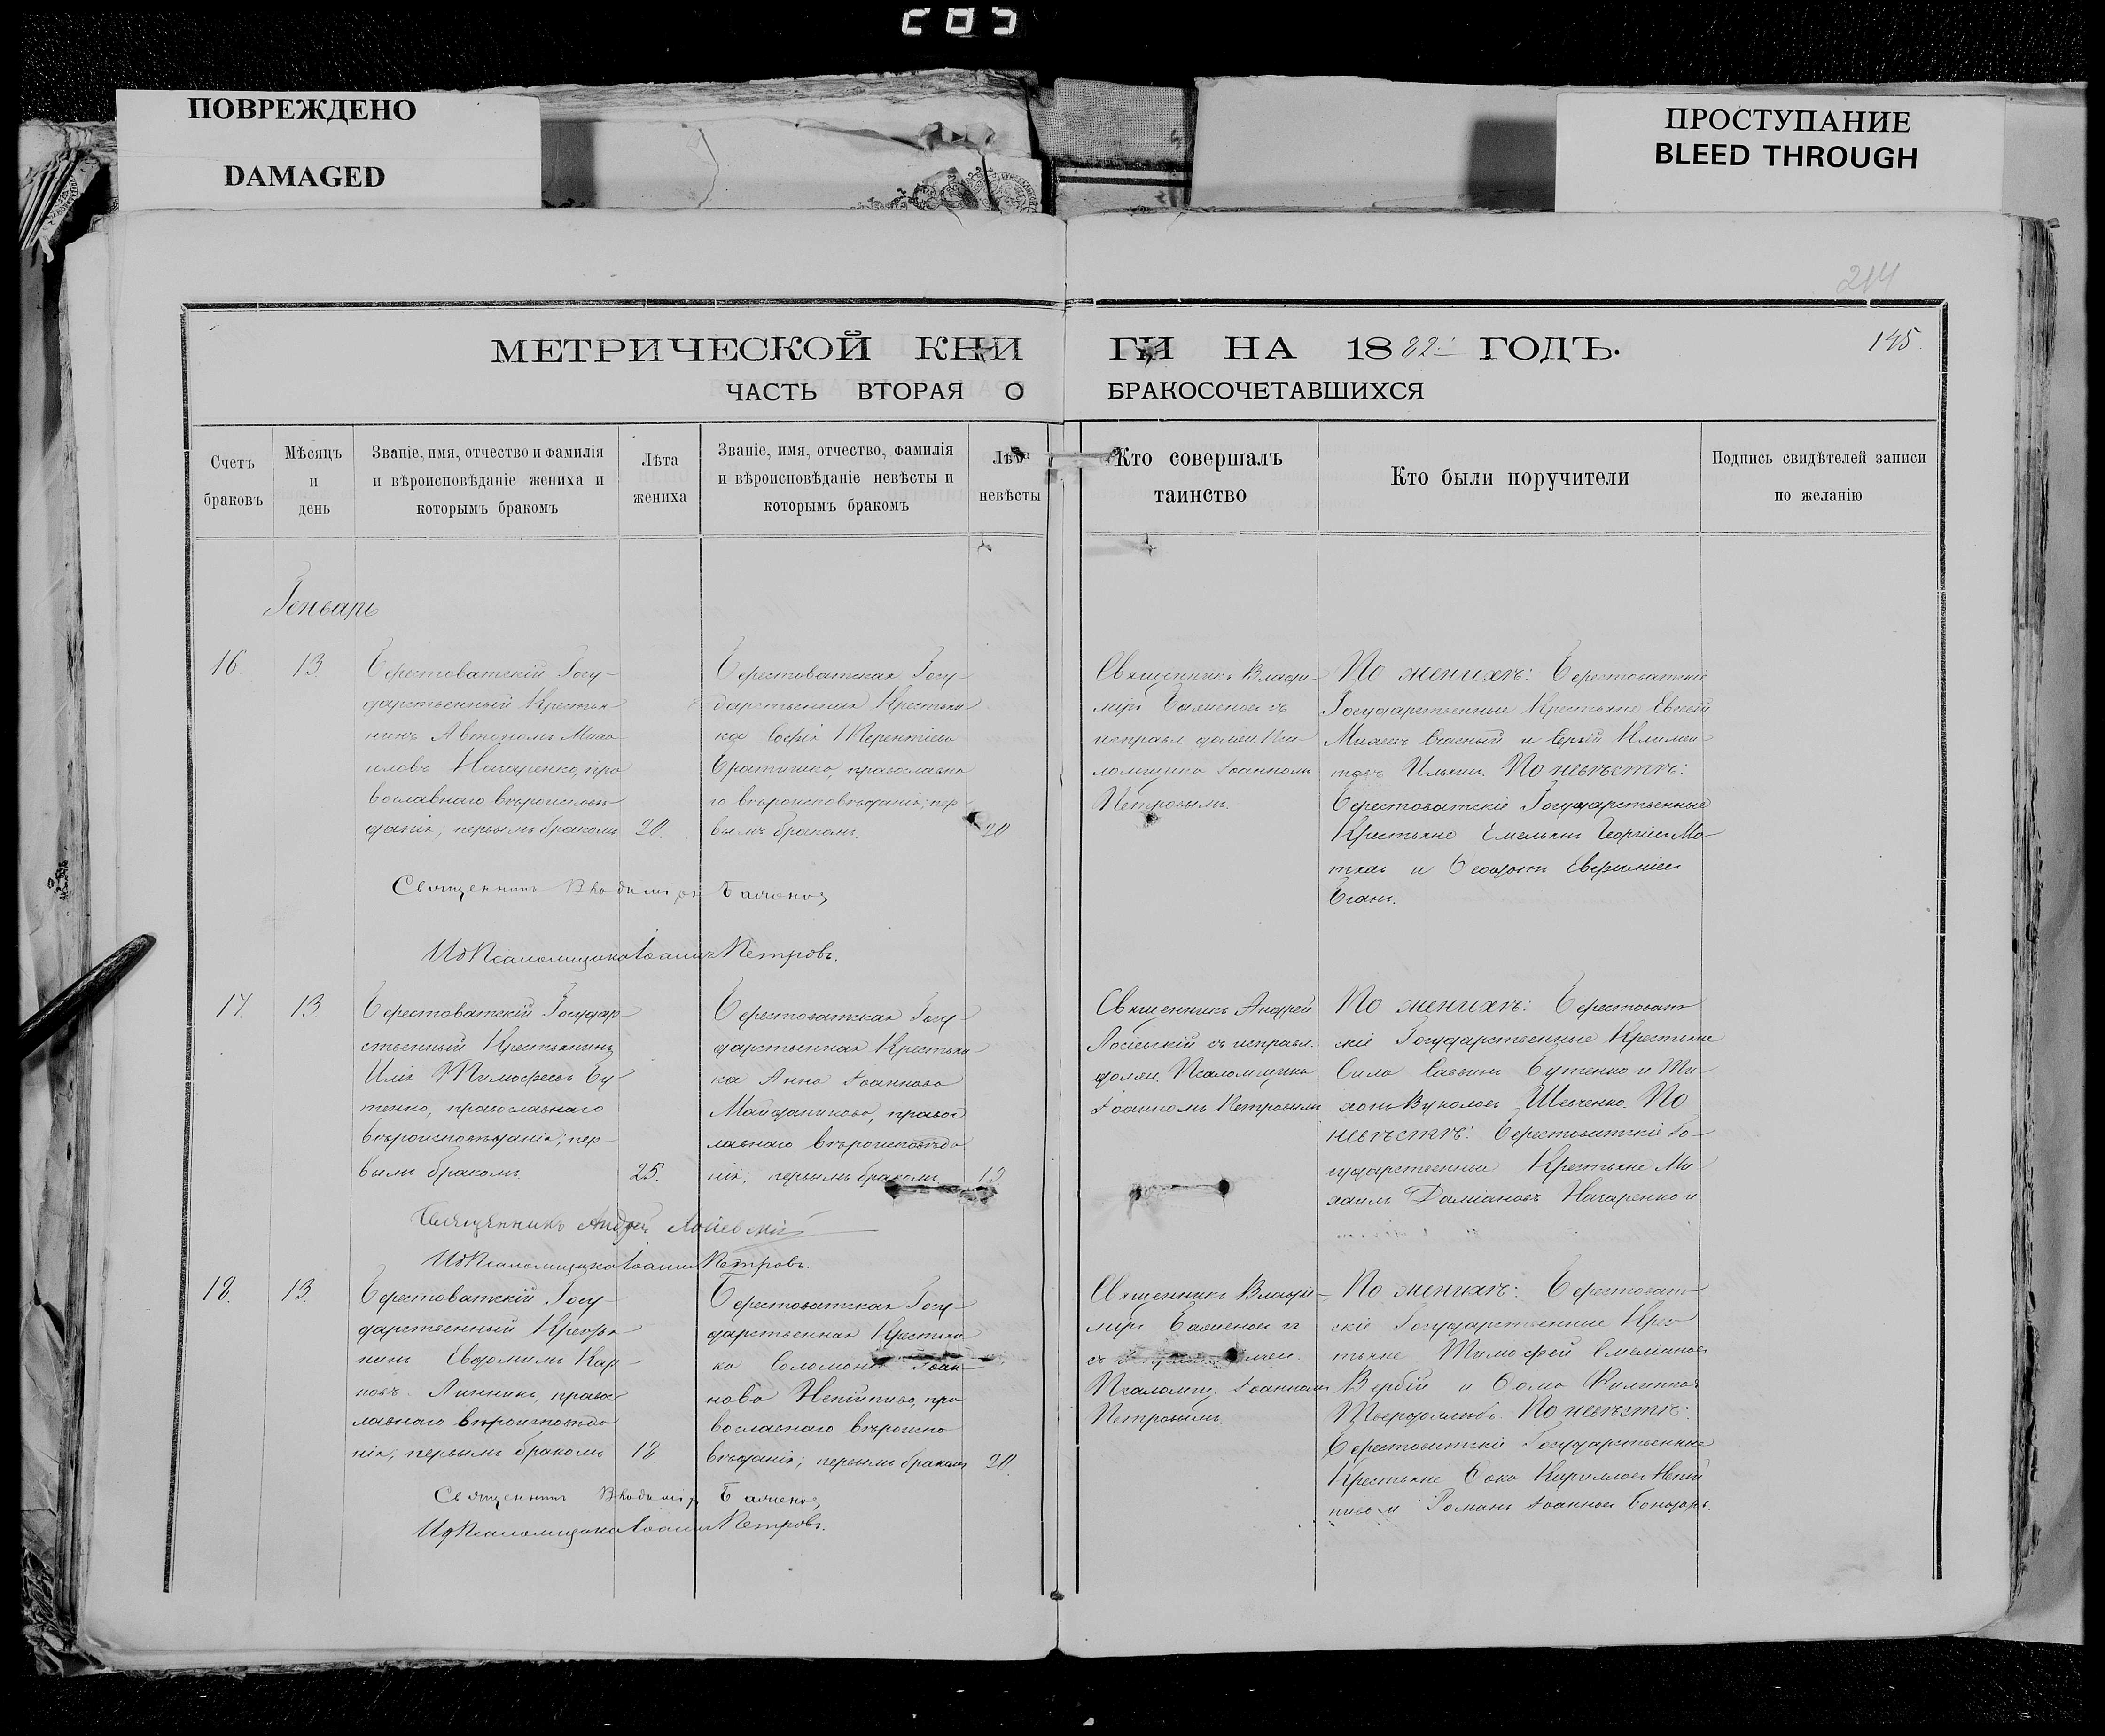 285
ПОВРЕЖДЕНО
DAMAGED
ПРОСТУПАНИЕ
BLEED THROUGH
214
МЕТРИЧЕСКОЙ КНИ
ГИ НА 1882 ГОДЪ.
145.
ЧАСТЬ ВТОРАЯ О
БРАКОСОЧЕТАВШИХСЯ
Счетъ
браковъ
Мѣсяцъ
и
день
Званіе, имя, отчество и фамилія
и вѣроисповѣданіе жениха и
которымъ бракомъ
Лѣта
жениха
Званіе, имя, отчество, фамилія
и вѣроисповѣданіе невѣсты и
которымъ бракомъ
Лѣта
невѣсты
Кто совершалъ
таинство
Кто были поручители
Подпись свидѣтелей записи
по желанію
Генварь
16.
13.
Берестоватскій Госу-
дарственный Крестья-
нинъ Автономъ Миха
иловъ Нагаренко, пра
вославнаго вѣроисповѣ
данія, первымъ бракомъ
20.
Берестоватская Госу-
дарственная Крестьян
ка Софія Терентіева
православна
го вѣроисповѣданія; пер-
вымъ бракомъ.
20
Священникъ Влади-
міръ Баженовъ съ
исправл. должн. Пса-
ломщика Іоанномъ
Петровымъ.
По женихѣ: Берестоватскіе
Государственные Крестьяне Евсевій
и Климен
товъ Ильинъ. По невѣстѣ:
Берестоватскіе Государственные
Крестьяне Емельянъ Георгіевъ
и Ѳеодотъ Евфиміевъ
Священникъ Владиміръ Баженовъ
ИдПсаломщика Іоаннъ Петровъ.
17.
13.
Берестоватскій Государ-
ственный Крестьянинъ
Илія Тимофеевъ Бу-
тенко, православнаго
вѣроисповѣданія; пер-
вымъ бракомъ.
25.
Берестоватская Госу-
дарственная Крестьян-
ка Анна Іоаннова
Майданикова, правос
лавнаго вѣроисповѣда
нія; первымъ бракомъ
19.
Священникъ Андрей
Лосіевскій съ исправл.
должн. Псаломщика
Іоанномъ Петровымъ
По женихѣ: Берестоват
скіе Государственные Крестьяне
Сила Саввинъ Бутенко и Ти-
хонъ Вуколовъ Шевченко. По
невѣстѣ: Берестоватскіе Го-
сударственные Крестьяне Ми-
хаилъ Даміановъ Нагаренко и
Священникъ Андрей Лосіевскій
ИдПсаломщика Іоаннъ Петровъ.
18.
13.
Берестоватскій Госу-
дарственный Крестья
нинъ Евдокимъ Кар-
повъ Линникъ, правос
лавнаго вѣроисповѣда
нія; первымъ бракомъ
18
Берестоватская Госу-
дарственная Крестьян
ка Соломонія Іоан-
нова Непійпива, пра
вославнаго вѣроиспо
вѣданія; первымъ бракомъ
20.
Священникъ Влади-
міръ Баженовъ
съ должн.
Псаломщ. Іоанномъ
Петровымъ.
По женихѣ: Берестоват-
скіе Государственные Крес
тьяне Тимофей Емеліановъ
Вербій и Ѳома Филиппов
По невѣстѣ:
Берестоватскіе Государственные
Крестьяне Фока Кирилловъ Непій
пиво и Романъ Іоанновъ Бондарь.
Священникъ Владиміръ Баженовъ
ИдПсаломщика Іоаннъ Петровъ.